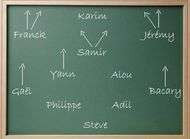 Karim
Franck Jérémy
Samir
Yann Alou
Gaël Bacary
Philippe Adil
Steve